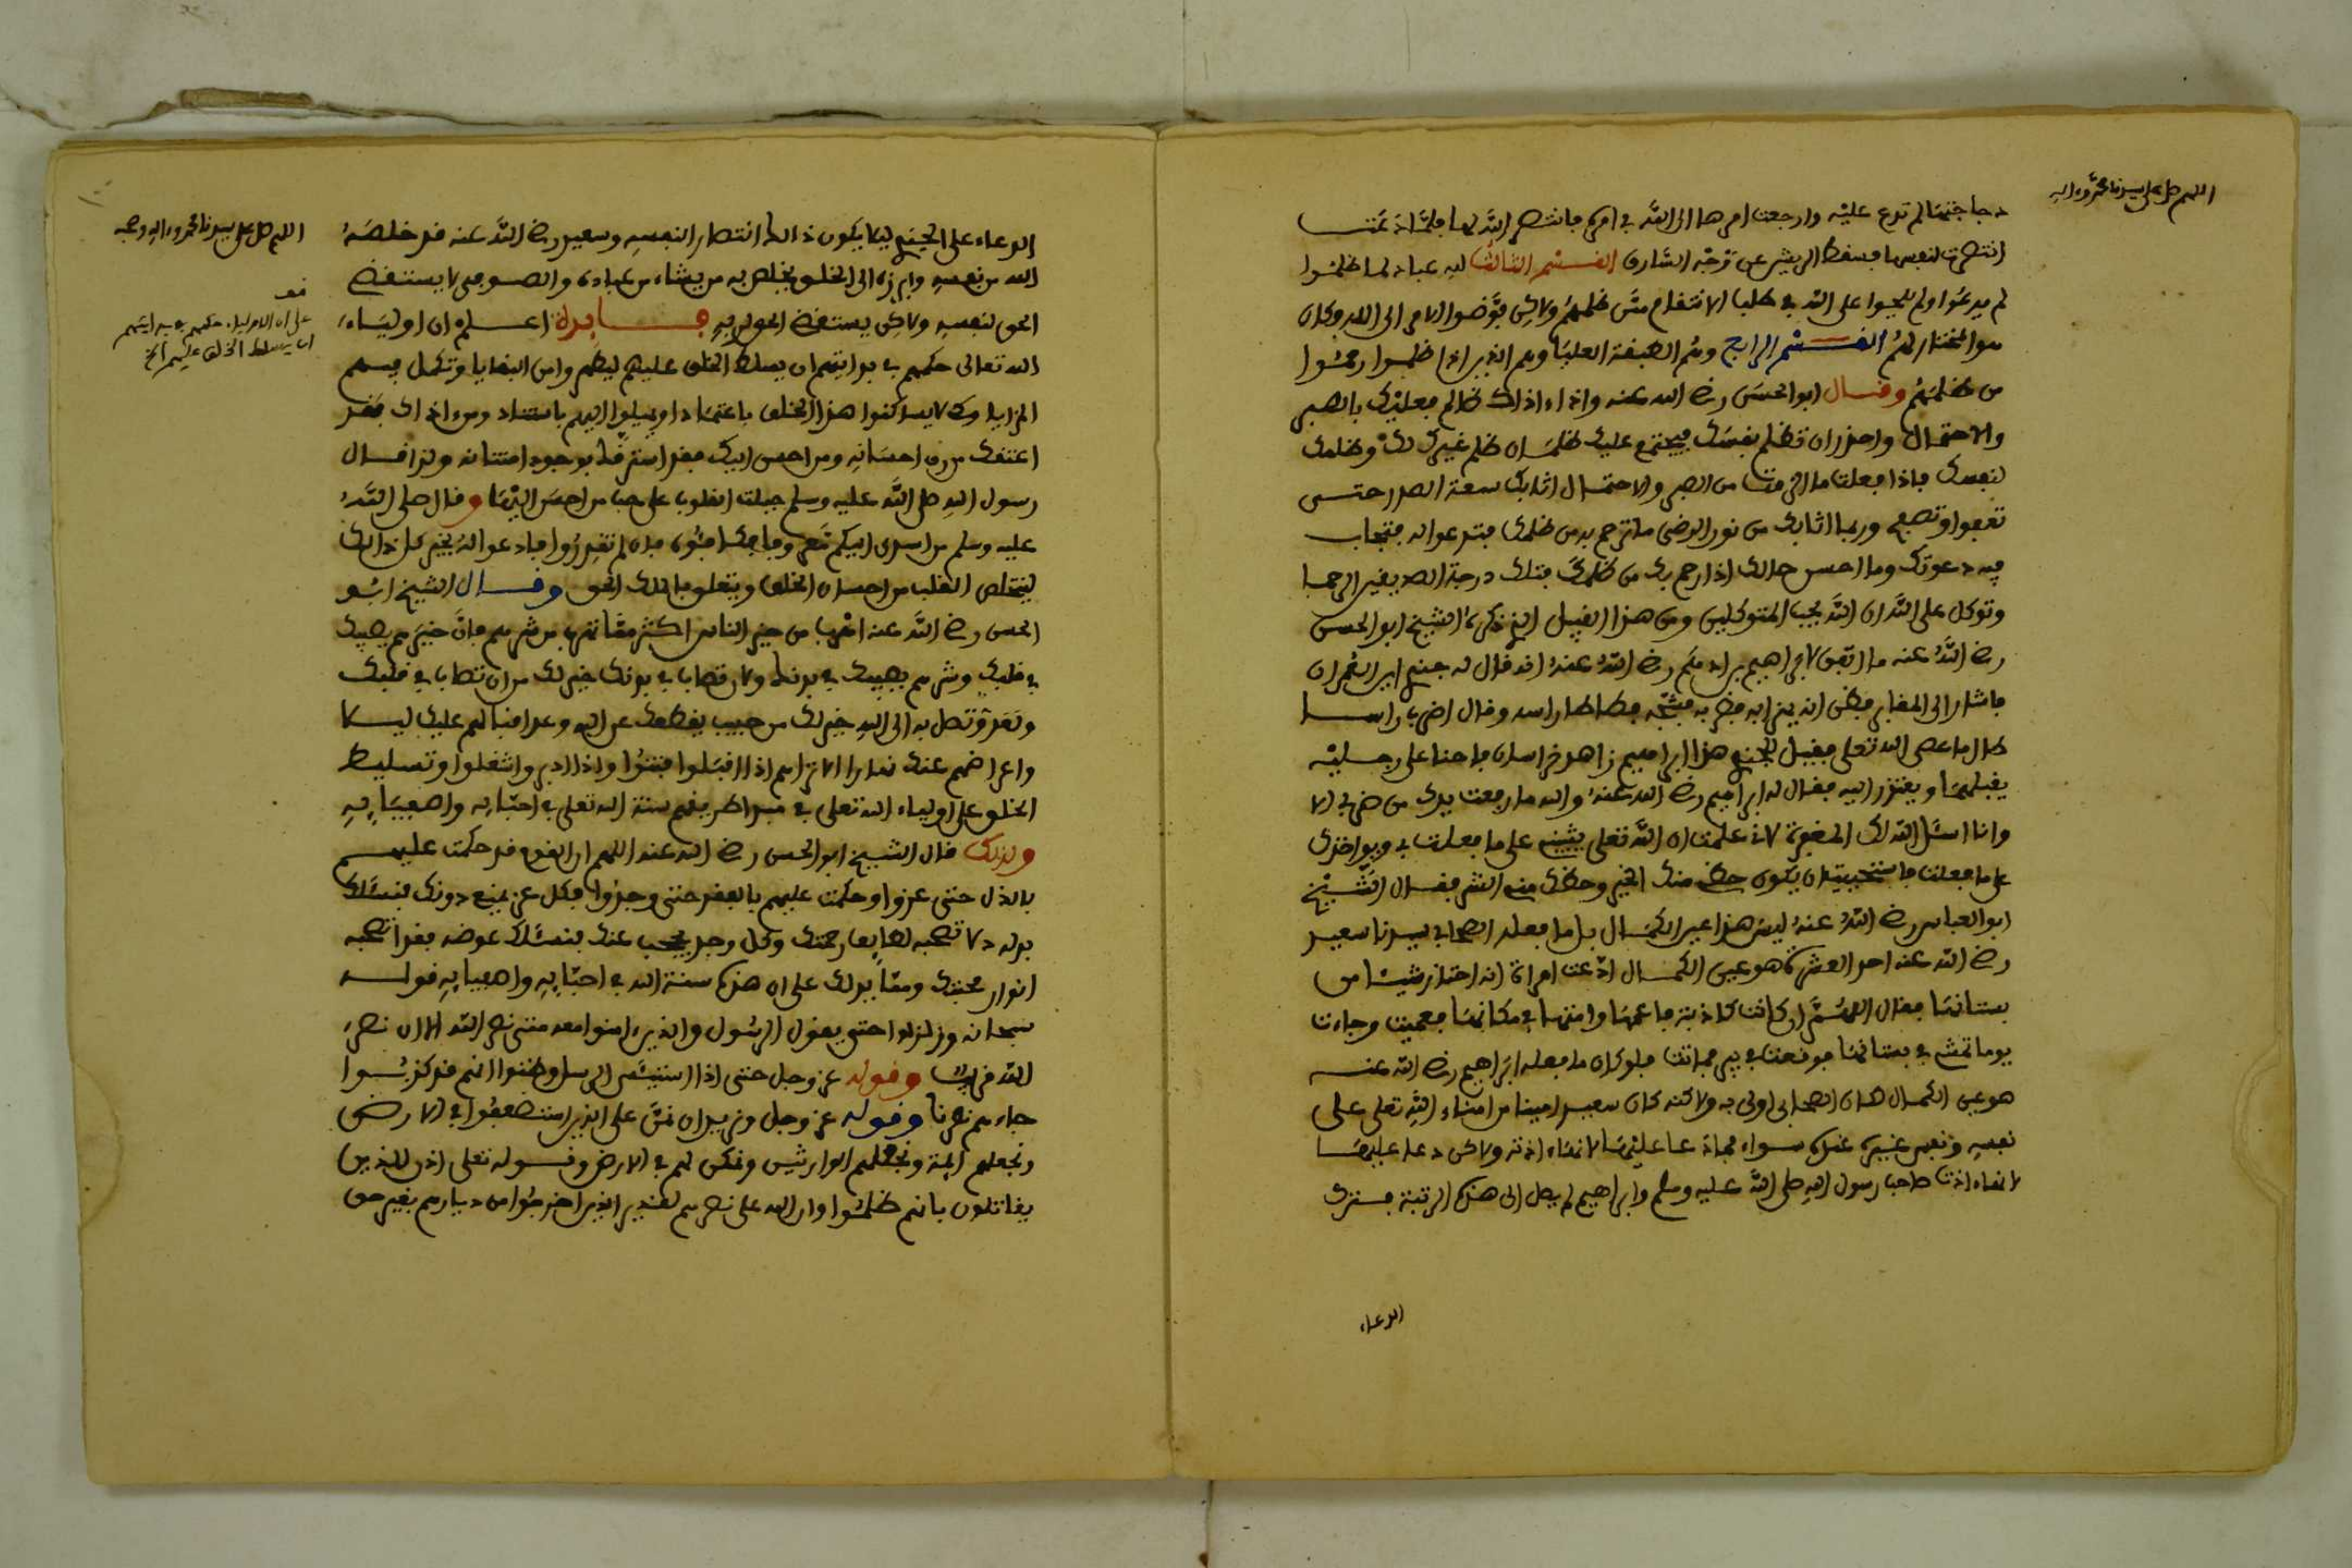 اللهم صل على سيدنا محمد وءاله
دجاجتها لم تدع عليه وارجعت امرها الى الله في امره فانتصر الله لها فلما دعت
انتصرت لنفسها فسقط الريش عن وجه السارق القسم الثالث لله عباد لما ظلموا
لم يدعوا ولم يلجوا على الله في طلب الانتقام ممن ظلمهم ولاكن فوضوا الامر الى الله وكان
هو المختار لهم القسم الرابع وهم الطبقة العليا وهم الذين اذا ظلموا رحموا
من ظلمهم وقال ابو الحسن رضي الله عنه واذا ءاذاك ظالم فعليك بالصبر
والاحتمال واحذر ان تظلم نفسك فيجتمع عليك ظلمان ظلم غيرك لك وظلمك
لنفسك فاذا فعلت ما الزمت من الصبر والاحتمال اثابك سعة الصدر حتى
تعفوا وتصفح وربما اثابك من نور الرضى ما ترحم به من ظلمك فتدعوا له فتجاب
فيه دعوتك وما احسن حالك اذا رحم بك من ظلمك فتلك درجة الصديقين الرحما
وتوكل على الله ان الله يحب المتوكلين ومن هذا القبيل الذي ذكره الشيخ ابو الحسن
رضي الله عنه ما اتفق لابراهيم بن ادهم رضي الله عنه انه قال له جندي اين العمران
فاشار الى المقابر فظن انه يهزا به فضربه فشجه فطاطا راسه وقال اضرب راسا
طال ما عصى الله تعلى فقيل للجندي هذا ابراهيم زاهد خراسان فاحنا على رجليه
يقبلهما ويعتذر اليه فقال له ابراهيم رضي الله عنه والله ما رفعت يدك من ضربي الا
وانا اسئل الله لك المغفرة لاني علمت ان الله تعلى يثيبني على ما فعلت بي ويواخذك
على ما فعلت فاستحييت ان يكون حظي منك الخير وحظك مني الشر فقال الشيخ
ابو العباس رضي الله عنه ليس هذا عين الكمال بل ما فعله الصحابي سيدنا سعيد
رضي الله عنه احد العشرة هو عين الكمال ادعت امراة انه احتاز شيئا من
بستانها فقال اللهم ان كانت كاذبة فاعمها وامتها في مكانها فعميت وجاءت
يوما تمشي في بستانها فوقعت في بير فماتت فلو كان ما فعله ابراهيم رضي الله عنه
هو عين الكمال لكان الصحابي اولى به ولاكنه كان سعيد امينا من امناء الله تعلى على
نفسه ونفس غيره عنده سواء فما دعا عليها لانها اذته ولاكن دعا عليها
لانها اذت صاحب رسول الله صلى الله عليه وسلم وابراهيم لم يصل الى هذه الرتبة فترك
الدعاء
اللهم صل على سيدنا محمد وءاله وصحبه
الدعاء على الجندي ليلا يكون ذالك انتصار النفسه وسعيد رضي الله عنه قد خلصه
الله من نفسه وابرزه الى الخلق يخلص به من يشاء من عباده والصوفي لا يستقضي
الحق لنفسه ولاكن يستقضي الحق لربه فايدة اعلم ان اولياء
الله تعالى حكمهم في بدايتهم ان يسلط الخلق عليهم ليطهروا من البقايا وتكمل فيهم
المزايا وكي لا يساكنوا هذا الخلق باعتماد او يميلوا اليهم باستناد ومن ءاذاك فقد
اعتقك من رق احسانه ومن احسن اليك فقد استرقك بوجود امتنانه ولذا قال
رسول الله صلى الله عليه وسلم جبلت القلوب على حب من احسن اليها وقال صلى الله
عليه وسلم من اسدى اليكم نعمة فكافئوه فان لم تقدروا فادعوا له بخير كل ذالك
ليتخلص القلب من احسان الخلق ويتعلق بالملك الحق وقال الشيخ ابو
الحسن رضي الله عنه اهرب من خير الناس اكثر مما تهرب من شرهم فان خيرهم يصيبك
في قلبك وشرهم يصيبك في بدنك ولان تصاب في بدنك خير لك من ان تصاب في قلبك
ولعدو تصل به الى الله خير لك من حبيب يقطعك عن الله وعد اقبالهم عليك ليلا
واعراضهم عنك نهارا الا تراهم اذا اقبلوا فتنوا واذا ادبروا شغلوا وتسليط
الخلق على اولياء الله تعلى في مبدا طريقهم سنة الله تعلى في احبابه واصفيايه
ولذلك قال الشيخ ابو الحسن رضي الله عنه اللهم ان القوم قد حكمت عليهم
بالذل حتى عزوا وحكمت عليهم بالفقر حتى وجدوا فكل عز يمنع دونك فنسئلك
بدله ذلا تصحبه لطايف رحمتك وكل وجد يحجب عنك فنسئلك عوضه فقرا تصحبه
انوار محبتك ومما يدلك على ان هذه سنة الله في احبابه واصفيايه قوله
سبحانه وزلزلوا حتى يقول الرسول والذين ءامنوا معه متى نصر الله الا ان نصر
الله قريب وقوله عز وجل حتى اذا استيئس الرسل وظنوا انهم قد كذبوا
جاءهم نصرنا وقوله عز وجل ونريد ان نمن على الذين استضعفوا في الارض
ونجعلهم ايمة ونجعلهم الوارثين ونمكن لهم في الارض وقوله تعلى اذن للذين
يقاتلون بانهم ظلموا وان الله على نصرهم لقدير الذين اخرجوا من ديارهم بغير حق
قف
على ان الاولياء حكمهم في بدايتهم
ان يسلط الخلق عليهم الخ